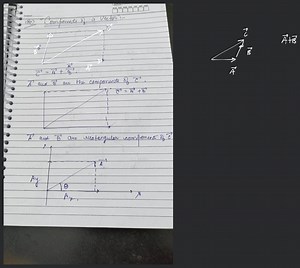 Components of a Vector:-
C⃗ = A⃗ + B⃗
A⃗ and B⃗ are the components of C⃗.
C⃗ = A⃗ + B⃗
A⃗ and B⃗ are rectangular component of C⃗
A⃗
Ay
θ
Ax
C⃗
B⃗
A⃗
A⃗+B⃗